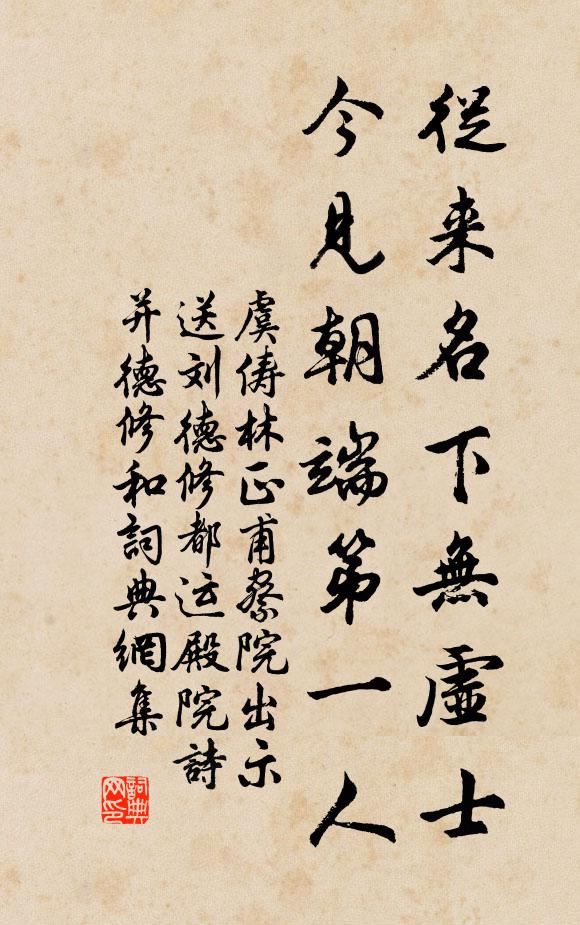 從来名下無虛士
今見朝端第一人
虞儔林正甫察院出示
送刘德修都运殿院詩
并德修和詞典網集
詞典网印